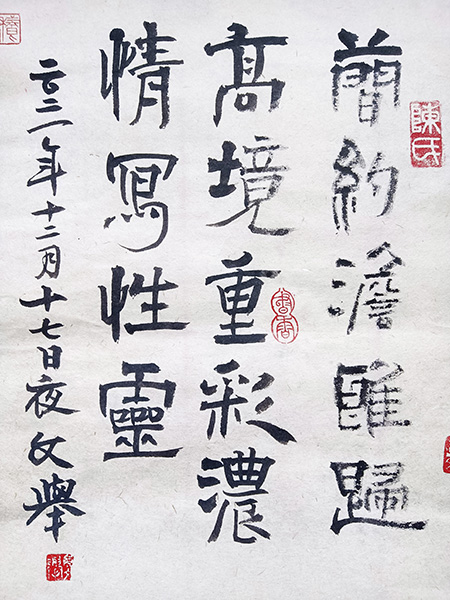 簡約澹雅歸
高境重彩濃
情寫性靈
二〇二一年十二月十七日夜文舉
陳氏
書香